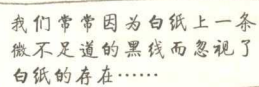 我们常常因为白纸上一条
微不足道的黑线而忽视了
白纸的存在……